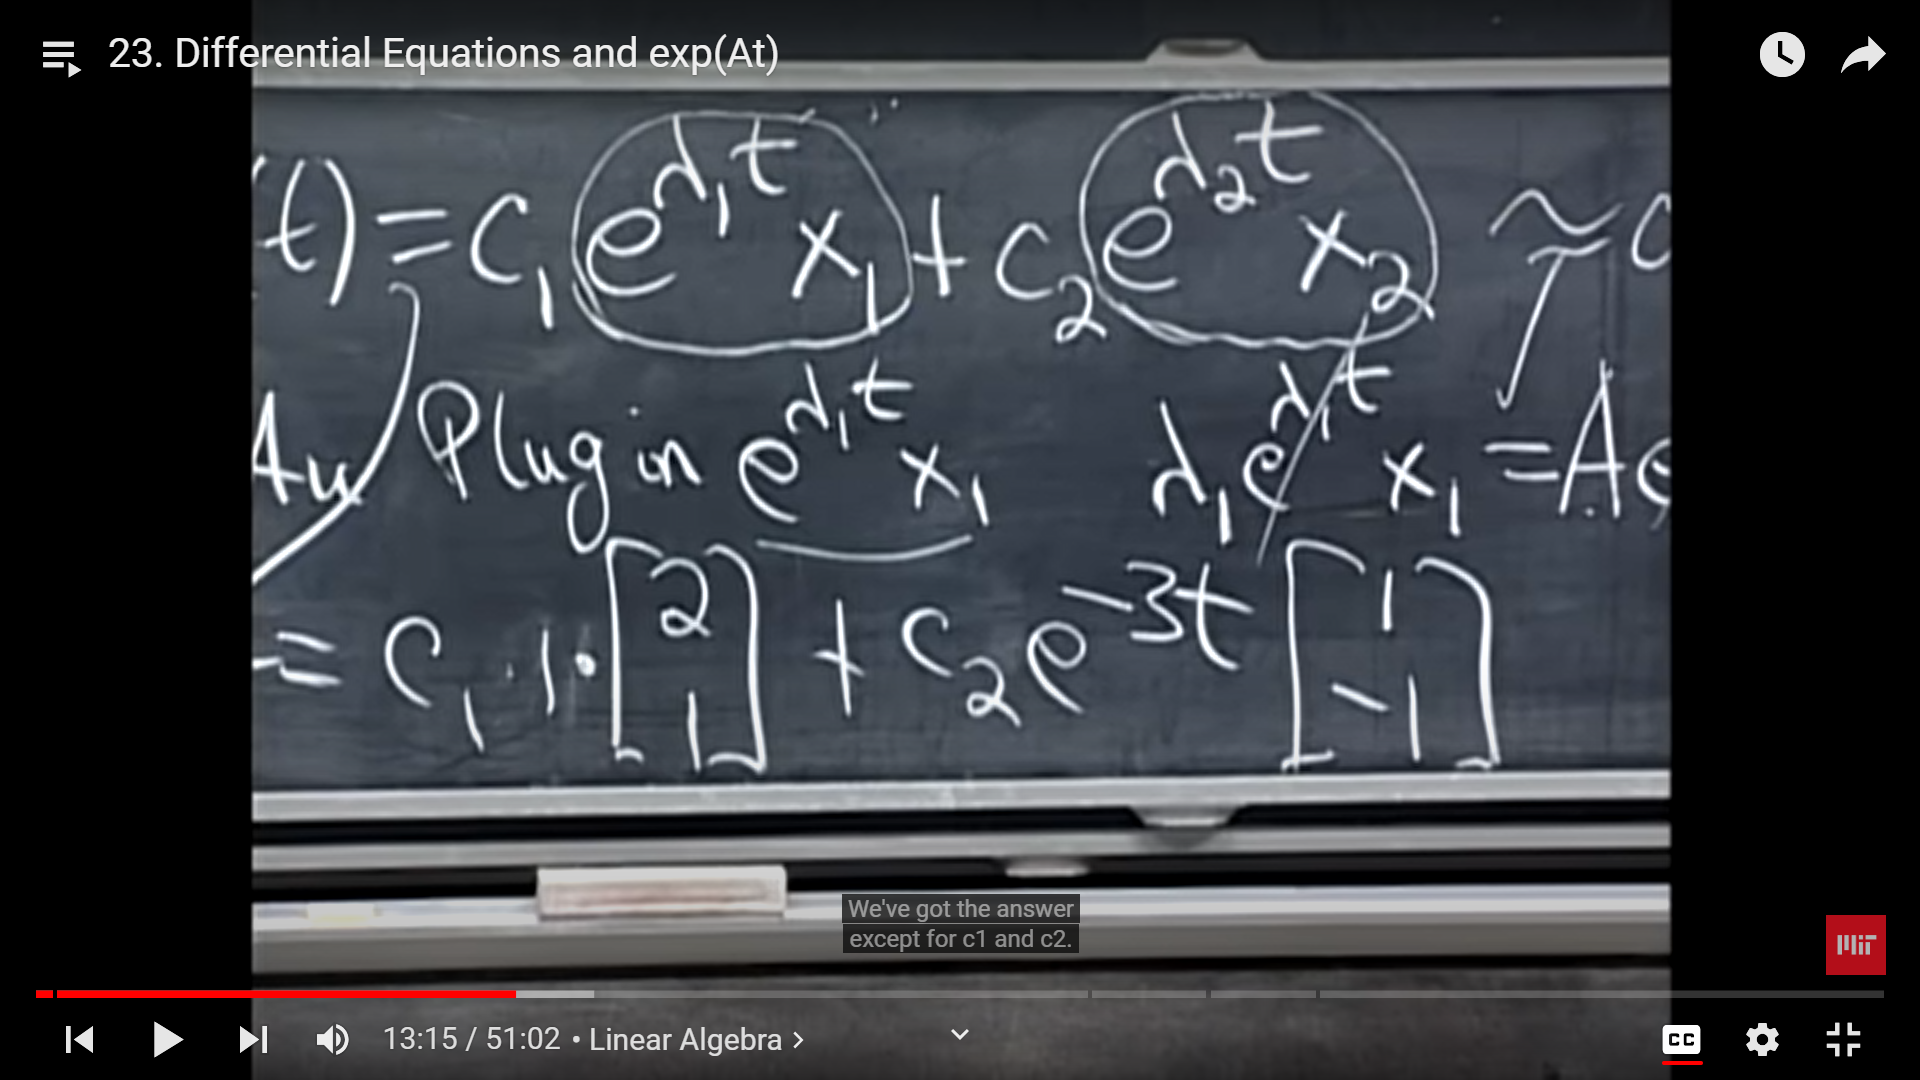 23. Differential Equations and exp(At)
(t) = c₁ e^{λ₁t} x₁ + c₂ e^{λ₂t} x₂ ≈ c
Au Plug in e^{λ₁t} x₁ λ₁ e^{λ₁t} x₁ = A e
= c₁ · 1 · [2 1] + c₂ e^{-3t} [1 -1]
We've got the answer
except for c1 and c2.
MIT
13:15 / 51:02 • Linear Algebra >
CC